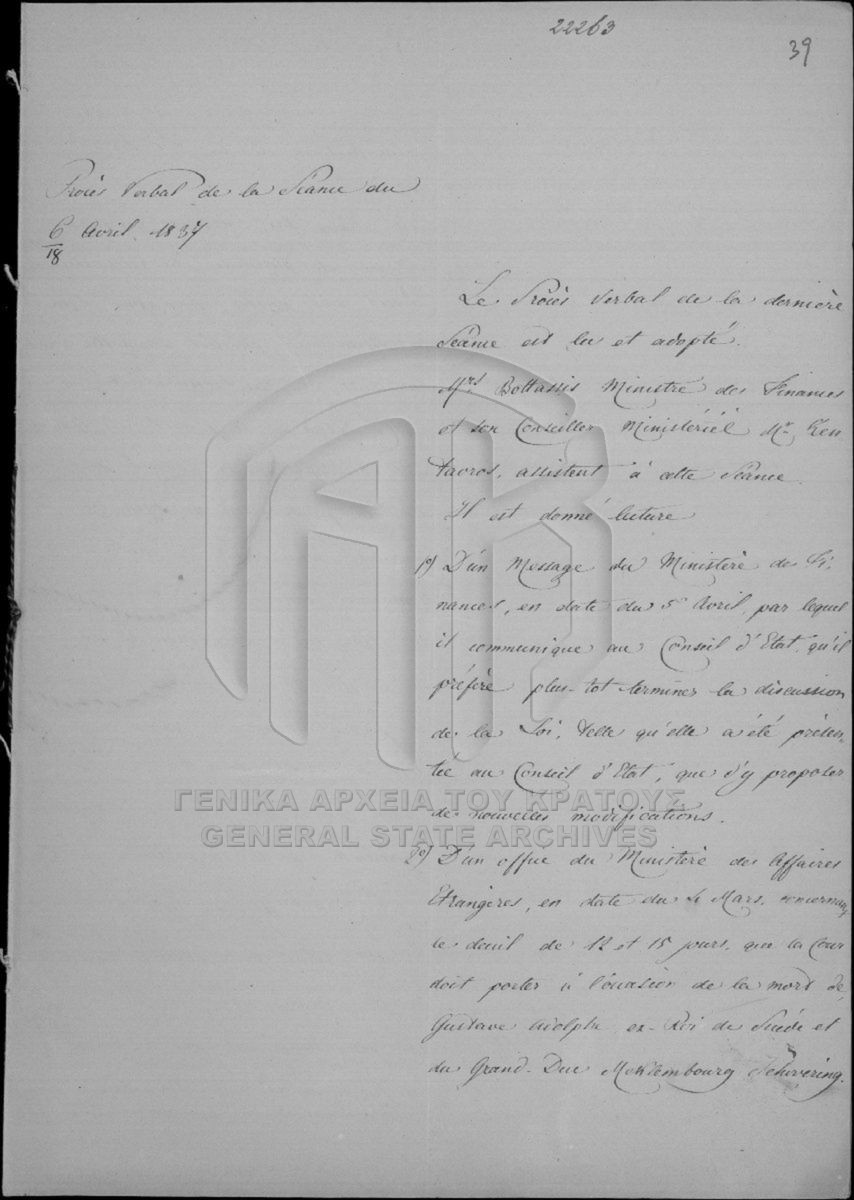 22263
39
Procès Verbal de la Séance du
6/18 Avril 1837
Le Procès Verbal de la dernière
Séance est lu et adopté.
Mrs Bottassis Ministre des Finances
et son Conseiller Ministériel Mr Ken
tavros, assistent à cette Séance.
Il est donné lecture
1o) D'un Message du Ministère des Fi-
nances, en date du 5 Avril, par lequel
il communique au Conseil d'Etat, qu'il
préfère plus-tot terminer la discussion
de la Loi, telle qu'elle a été présen-
tée au Conseil d'Etat, que d'y proposer
de nouvelles modifications.
2o) D'un office du Ministère des Affaires
Etrangères, en date du 4 Mars, concernant
le deuil de 12 et 15 jours, que la Cour
doit porter à l'occasion de la mort de
Gustave Adolphe ex-Roi de Suède et
du Grand-Duc Meklembourg Schwering.
ΓΕΝΙΚΑ ΑΡΧΕΙΑ ΤΟΥ ΚΡΑΤΟΥΣ
GENERAL STATE ARCHIVES